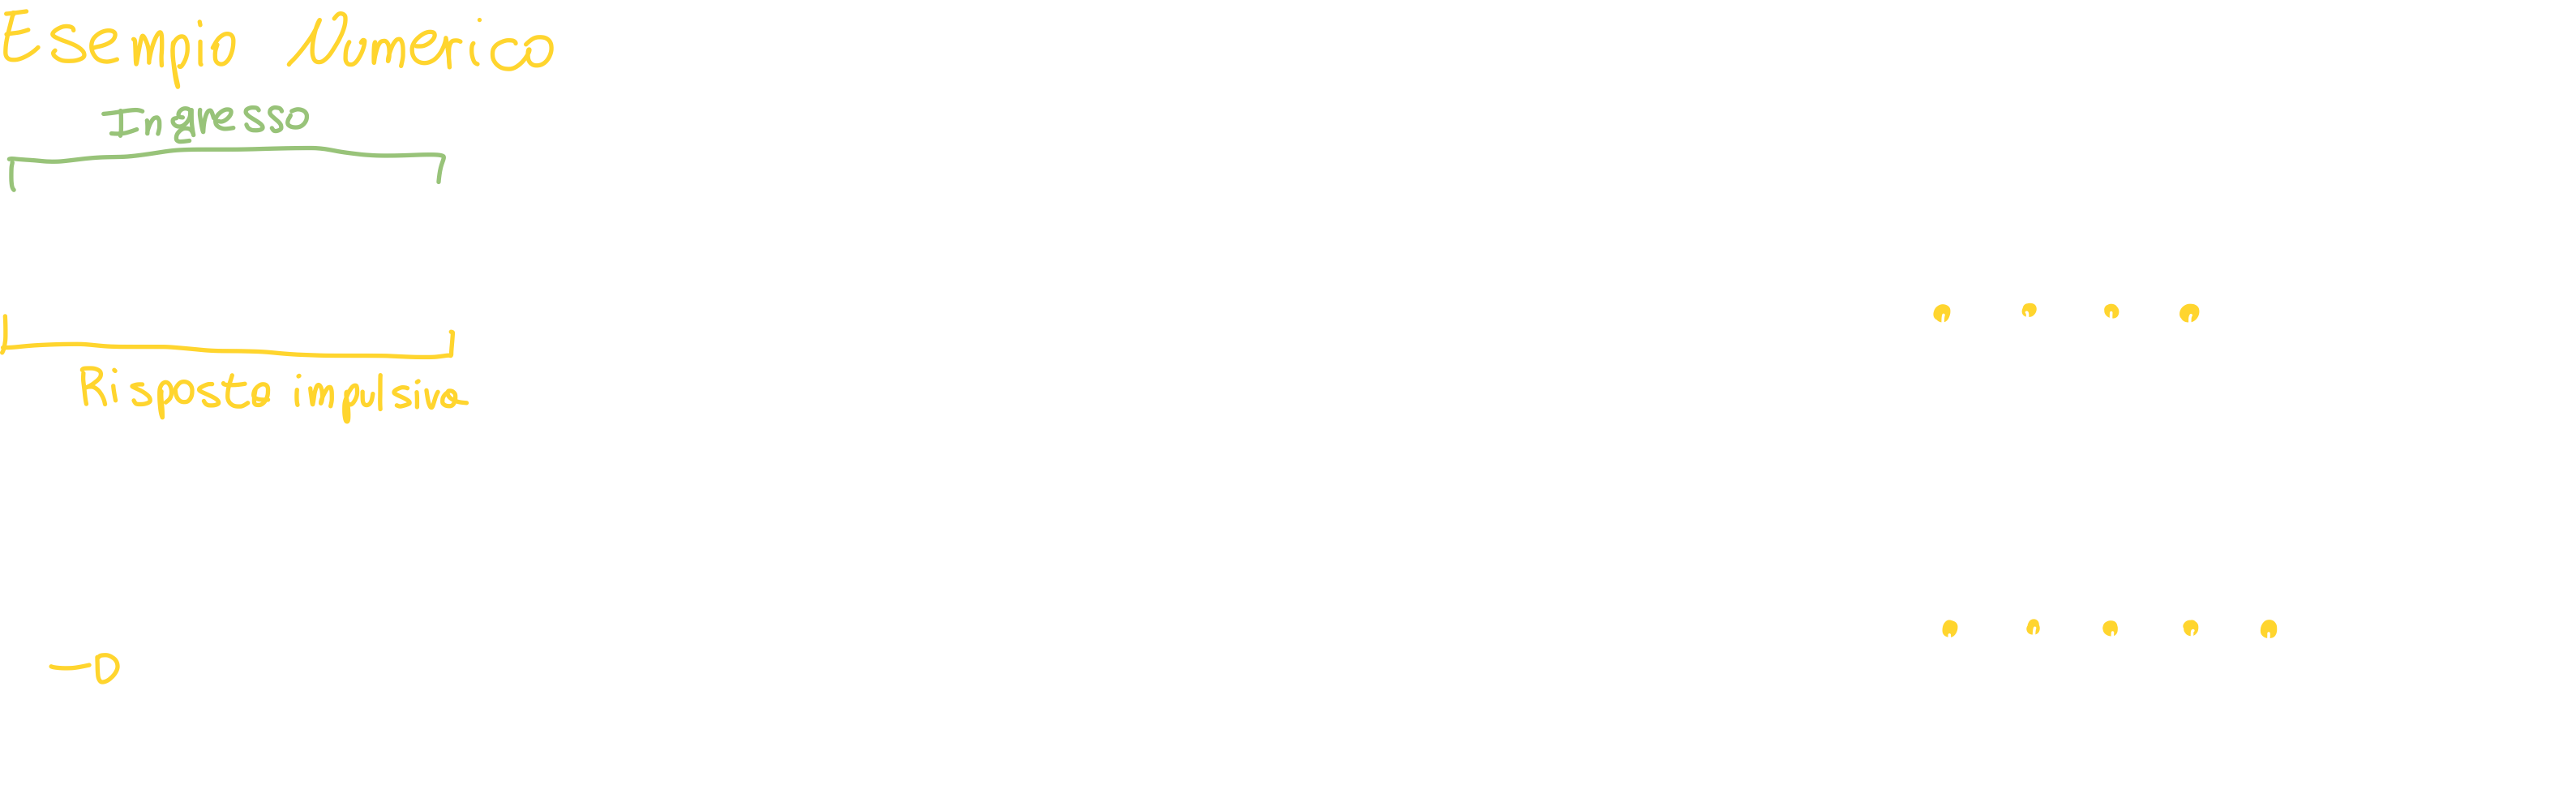 Esempio Numerico
Ingresso
Risposta impulsiva